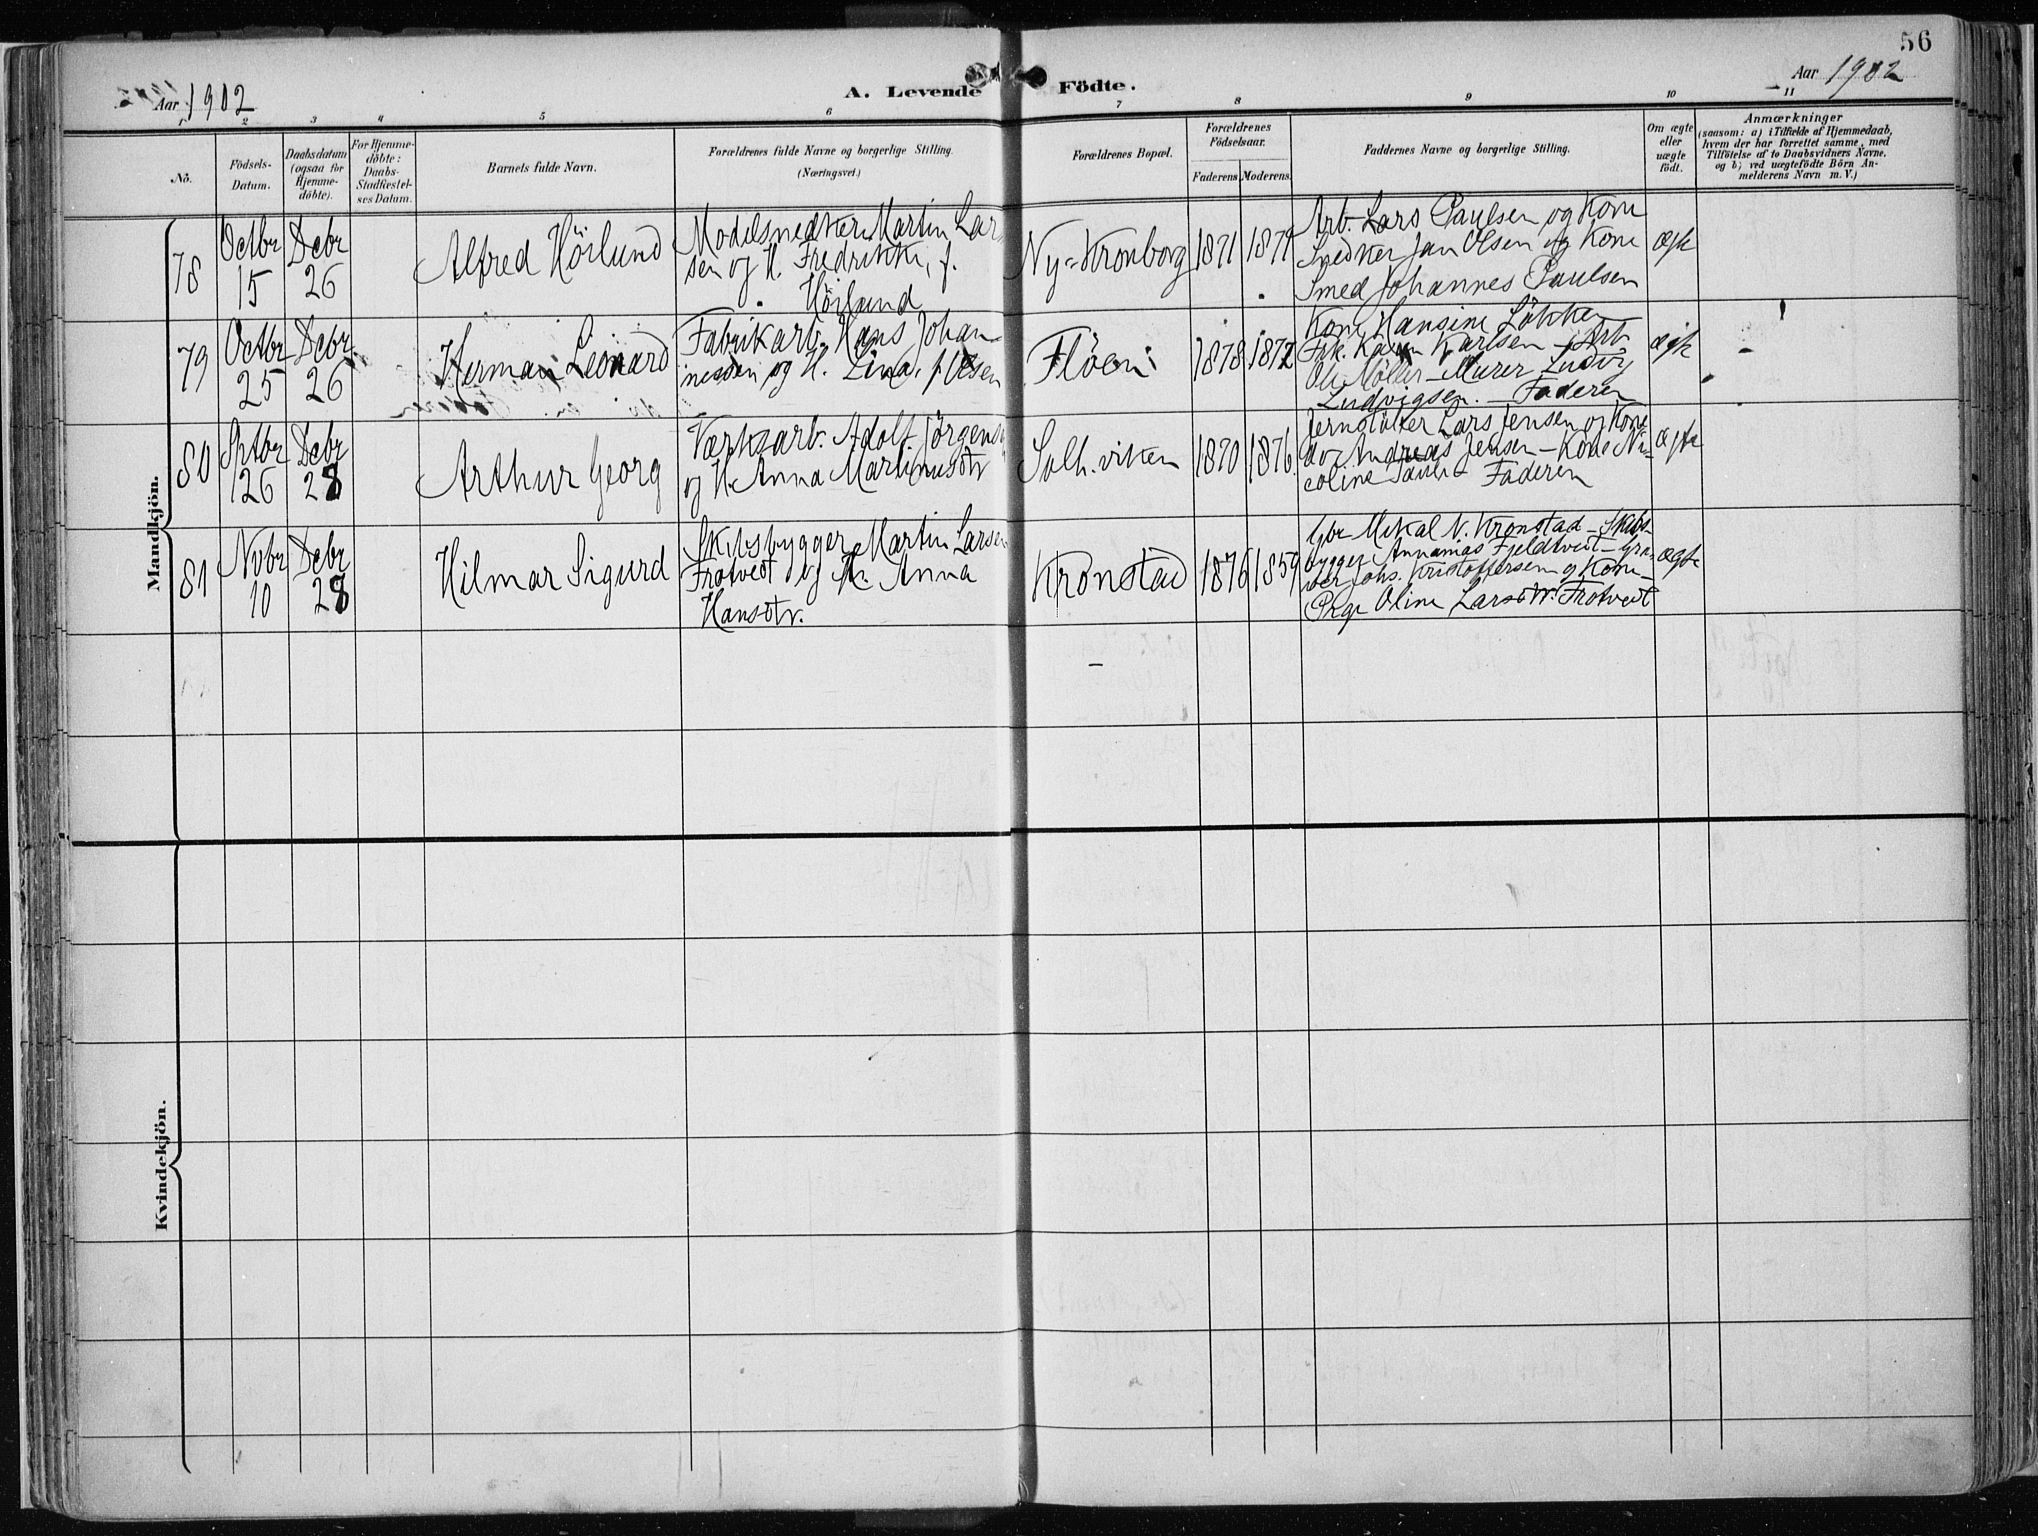 56
Aar 1902
A. Levende Födte.
Aar 1902
1 2 3 4 5 6 7 8 9 10 11
No.
Födsels-
Datum.
Daabsdatum
(ogsaa for
Hjemme-
döbte).
For Hjemme-
döbte:
Daabs-
Stadfæstel-
ses Datum.
Barnets fulde Navn.
Forældrenes fulde Navne og borgerlige Stilling.
(Næringsvei.)
Forældrenes Bopæl.
Forældrenes
Födselsaar.
Faderens. Moderens.
Faddernes Navne og borgerlige Stilling.
Om ægte
eller
uægte
födt.
Anmærkninger
(saasom: a) i Tilfælde af Hjemmedaab,
hvem der har forrettet samme, med
Tilföielse af to Daabsvidners Navne,
og b) ved uægtefödte Börn An-
melderens Navn m. V.)
Mandkjön.
78
Octbr
15
Debr
26
Alfred Höilund
Modelsnedker Martin Lar
sen og H. Fredrikke, f.
Höilund
Ny-Kronborg
1871
1879
Arb. Lars Paulsen og Kone
Snedker Jan Olsen og Kone
Smed Johannes Paulsen
ægte
79
Octbr
25
Debr
26
Herman Leonard
Fabrikarb. Hans Johan
nessen og H. Lina, f Olsen
Flöen
1878
1872
Kone Hansine Lökken
Frk. Karen Karlsen - Arb
Ole Möller - Murer Ludvig
Ludvigsen. - Faderen
ægte
80
Septbr
26
Debr
28
Arthur Georg
Værksarb. Adolf Jörgens
og H. Anna Martinusdtr
Solh.viken
1870
1876
Lars Jensen og Kone
Andreas Jensen - Kone Ni
coline - Faderen
ægte
81
Nvbr
10
Debr
28
Hilmar Sigurd
Skibsbygger Martin Larsen
Frotvedt og H. Anna
Hansdtr.
Kronstad
1876
1859
Gbr Mikal N. Kronstad - Skibs-
bygger Annanias Fjeldtvedt - Gra
ver Johs. Kristoffersen og Kone -
Pige Oline Larsdtr. Frotvedt
ægte
Kvindekjön.